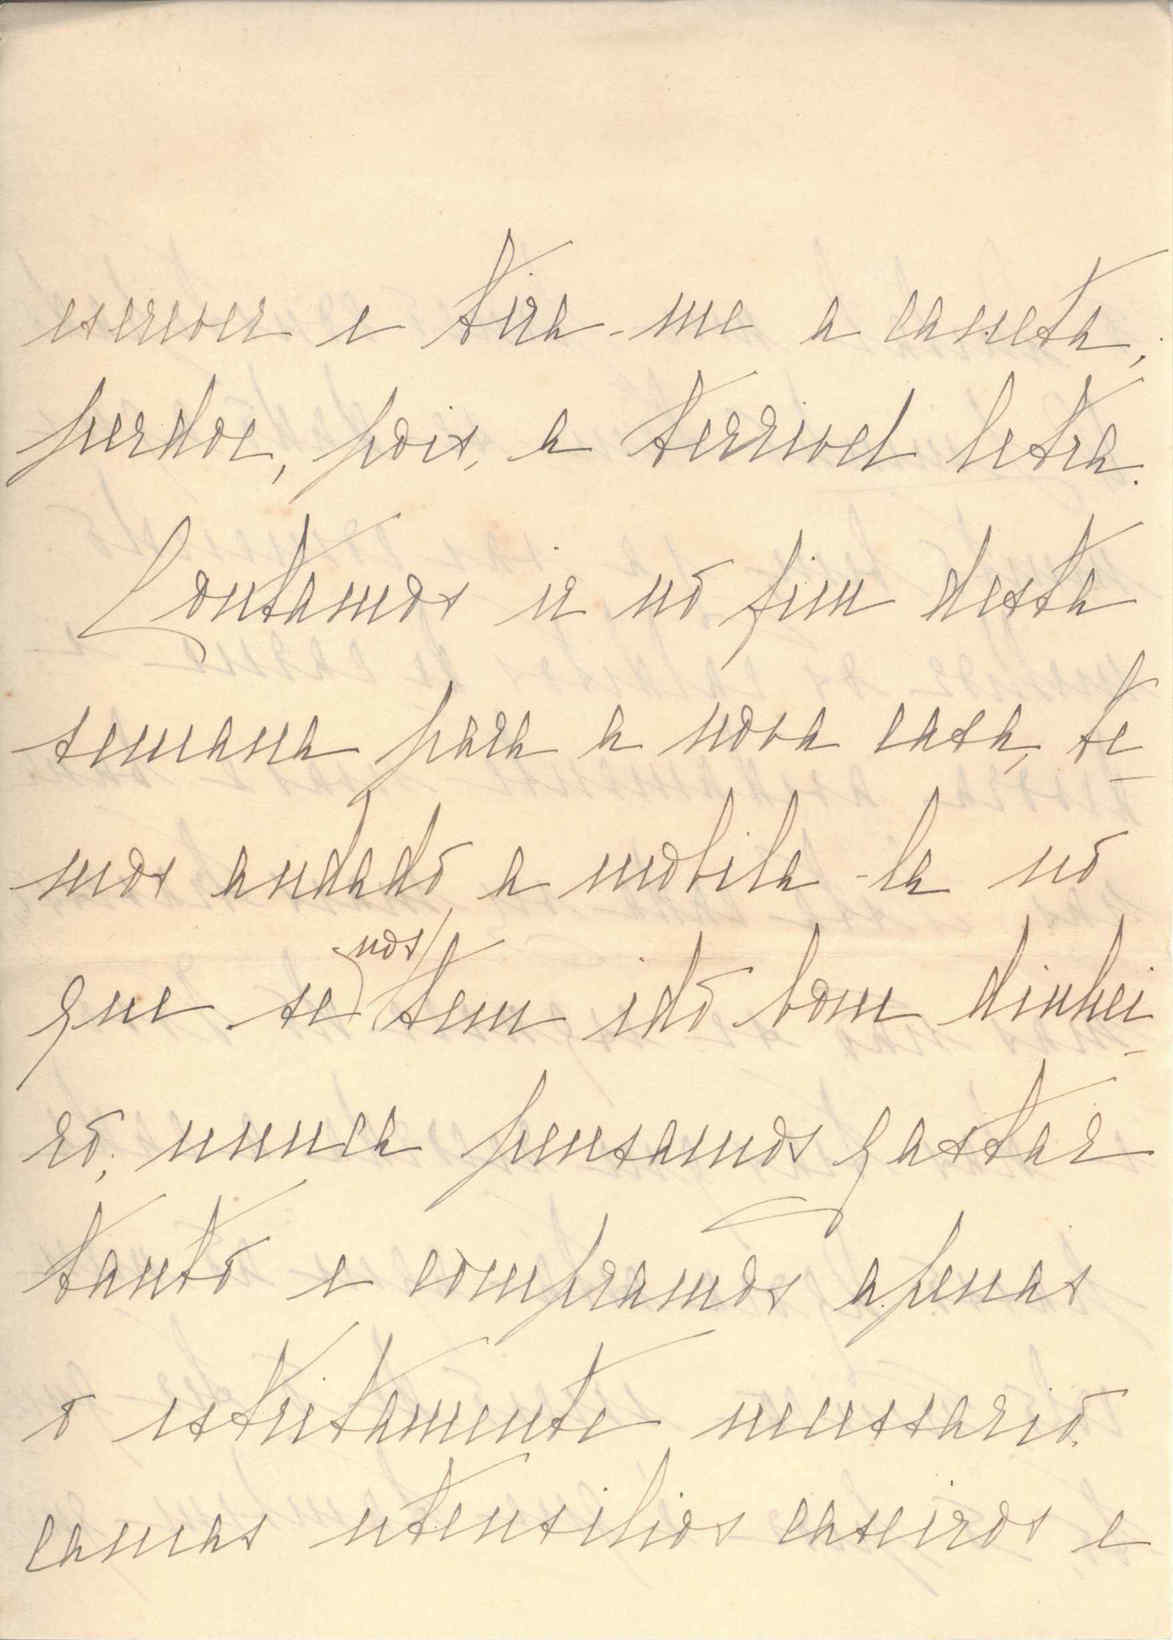 escrever e tira-me a caneta,
perdoe, pois, a terrivel letra.
Contamos ir no fim desta
semana para a nova casa, te-
mos andado a mobila-la no
que se nos tem ido bom dinhei-
ro, nunca pensamos gastar
tanto e compramos apenas
o estritamente necessario.
camas utensilios caseiros e